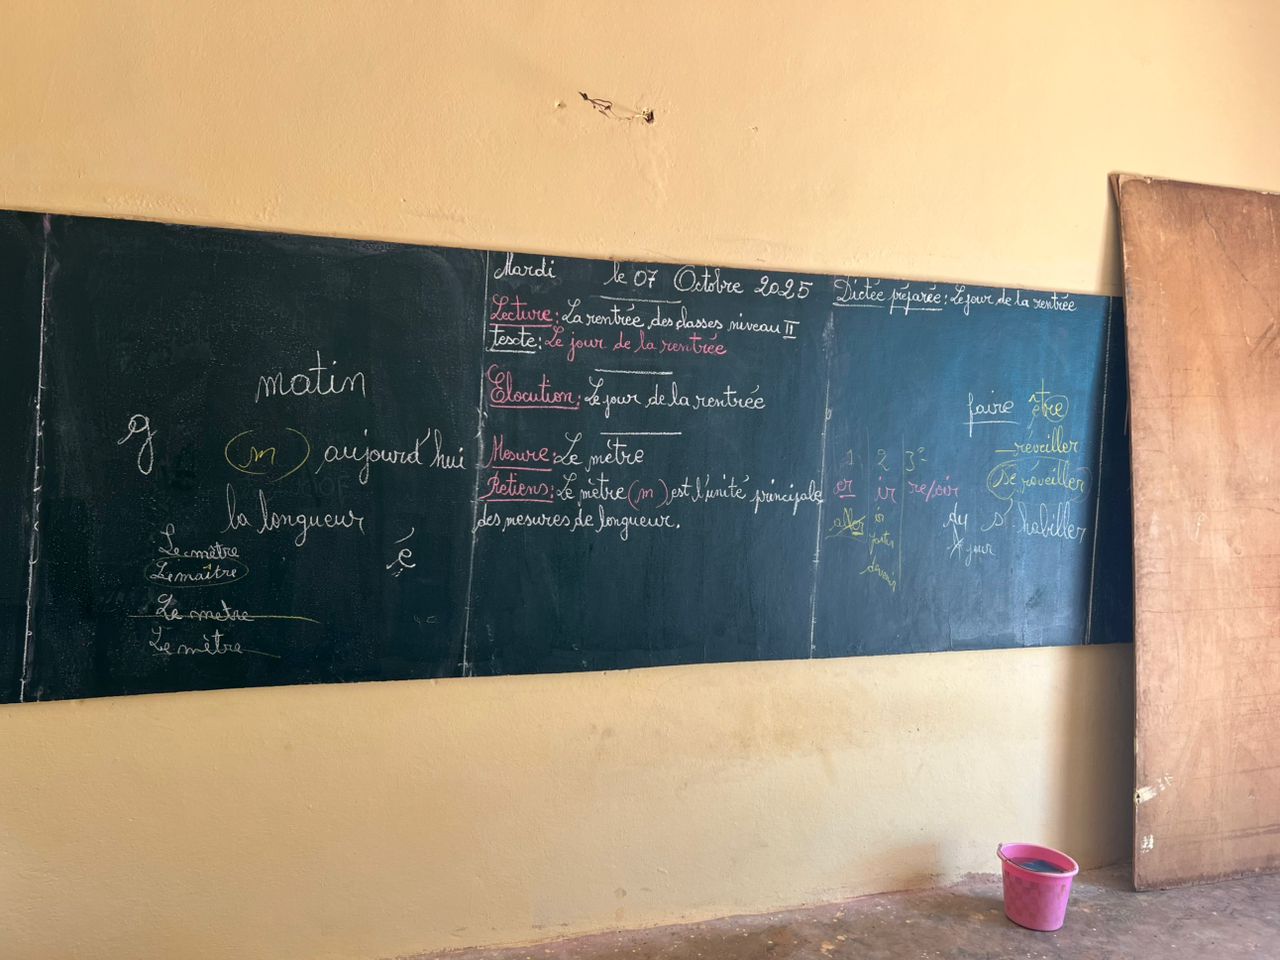 matin
g
(m) aujourd'hui
la longueur
Le mètre
é
Le maître
Le metre
Le mètre
Mardi le 07 Octobre 2025
Lecture: La rentrée des classes niveau II
Texte: Le jour de la rentrée
Elocution: Le jour de la rentrée
Mesure: Le mètre
Retiens: Le mètre (m) est l'unité principale
des mesures de longueur.
Dictée préparée: Le jour de la rentrée
faire être
réveiller
1 2 3e
er ir re/oir
se réveiller
aller ir
partir
devenir
s'habiller
jour